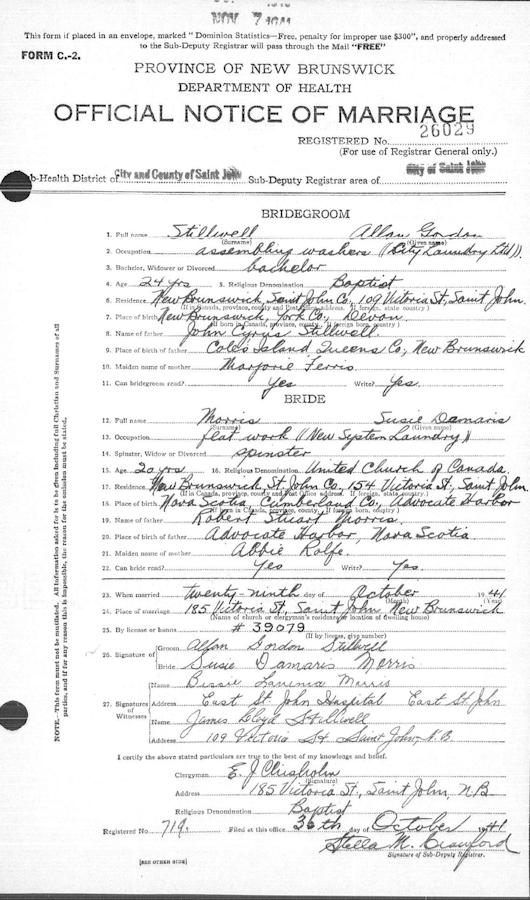 NOV 7 1941
This form if placed in an envelope, marked "Dominion Statistics—Free, penalty for improper use $300", and properly addressed
to the Sub-Deputy Registrar will pass through the Mail "FREE"
FORM C.-2.
PROVINCE OF NEW BRUNSWICK
DEPARTMENT OF HEALTH
OFFICIAL NOTICE OF MARRIAGE
REGISTERED No. 26029
(For use of Registrar General only.)
b-Health District of City and County of Saint John Sub-Deputy Registrar area of City of Saint John
BRIDEGROOM
1. Full name Stillwell Allan Gordon
(Surname) (Given name)
2. Occupation assembling washers ((City Laundry Ltd)).
3. Bachelor, Widower or Divorced bachelor
4. Age 24 yrs 5. Religious Denomination Baptist
6. Residence New Brunswick, Saint John Co, 109 Victoria St, Saint John.
(If in Canada, province, county and Post Office address. If foreign, state country)
7. Place of birth New Brunswick, York Co., Devon.
(If born in Canada, province, county. If foreign born, country)
8. Name of father John Cyrus Stillwell
9. Place of birth of father Coles Island, Queens Co, New Brunswick
10. Maiden name of mother Marjorie Ferris.
11. Can bridegroom read? Yes Write? Yes.
BRIDE
12. Full name Morris Susie Damaris
(Surname) (Given name)
13. Occupation flat work ((New System Laundry))
14. Spinster, Widow or Divorced spinster
15. Age 20 yrs 16. Religious Denomination United Church of Canada.
17. Residence New Brunswick, St. John Co., 154 Victoria St, Saint John
(If in Canada, province, county and Post Office address. If foreign, state country)
18. Place of birth Nova Scotia Cumberland Co., Advocate Harbor
(If born in Canada, province, county. If foreign born, country)
19. Name of father Robert Stuart Morris.
20. Place of birth of father Advocate Harbor, Nova Scotia.
21. Maiden name of mother Abbie Rolfe.
22. Can bride read? Yes Write? Yes.
23. When married twenty-ninth day of October 1941
(Month) (Year)
24. Place of marriage 185 Victoria St, Saint John New Brunswick
(Name of church or clergyman's residence or location of dwelling house)
25. By license or banns # 39079
(If by license, give number)
26. Signature of
Groom Allan Gordon Stillwell
Bride Susie Damaris Morris
27. Signatures of Witnesses
Name Bessie Lavinia Morris
Address East St John Hospital East St John
Name James Lloyd Stillwell
Address 109 Victoria St Saint John, N.B.
I certify the above stated particulars are true to the best of my knowledge and belief.
Clergyman E. J. Chisholm
(Signature)
Address 185 Victoria St., Saint John, N.B.
Religious Denomination Baptist
Registered No. 719. Filed at this office 30th day of October 1941
Stella M. Crawford
Signature of Sub-Deputy Registrar.
[SEE OTHER SIDE]
NOTE.—This form must not be mutilated. All information asked for is to be given including full Christian and Surnames of all
parties, and if for any reason this is impossible, the reason for the omission must be stated.